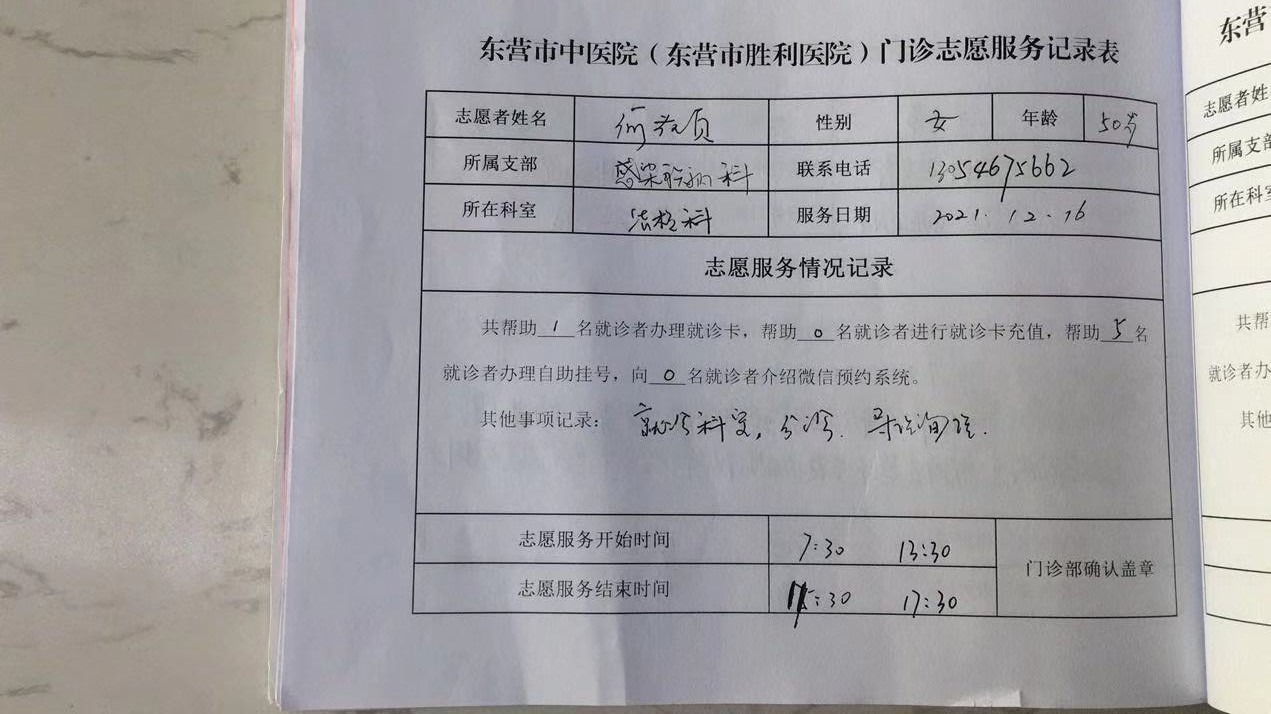 东营市中医院（东营市胜利医院）门诊志愿服务记录表
志愿者姓名 性别 女 年龄 50岁
所属支部 感染 科 联系电话 13054675662
所在科室 科 服务日期 2021.12.16
志愿服务情况记录
共帮助 1 名就诊者办理就诊卡，帮助 0 名就诊者进行就诊卡充值，帮助 5 名
就诊者办理自助挂号，向 0 名就诊者介绍微信预约系统。
其他事项记录： 就诊科室，分诊.
志愿服务开始时间 7:30 13:30
门诊部确认盖章
志愿服务结束时间 :30 17:30
东营
志愿者姓
所属支部
所在科室
共帮
就诊者办
其他